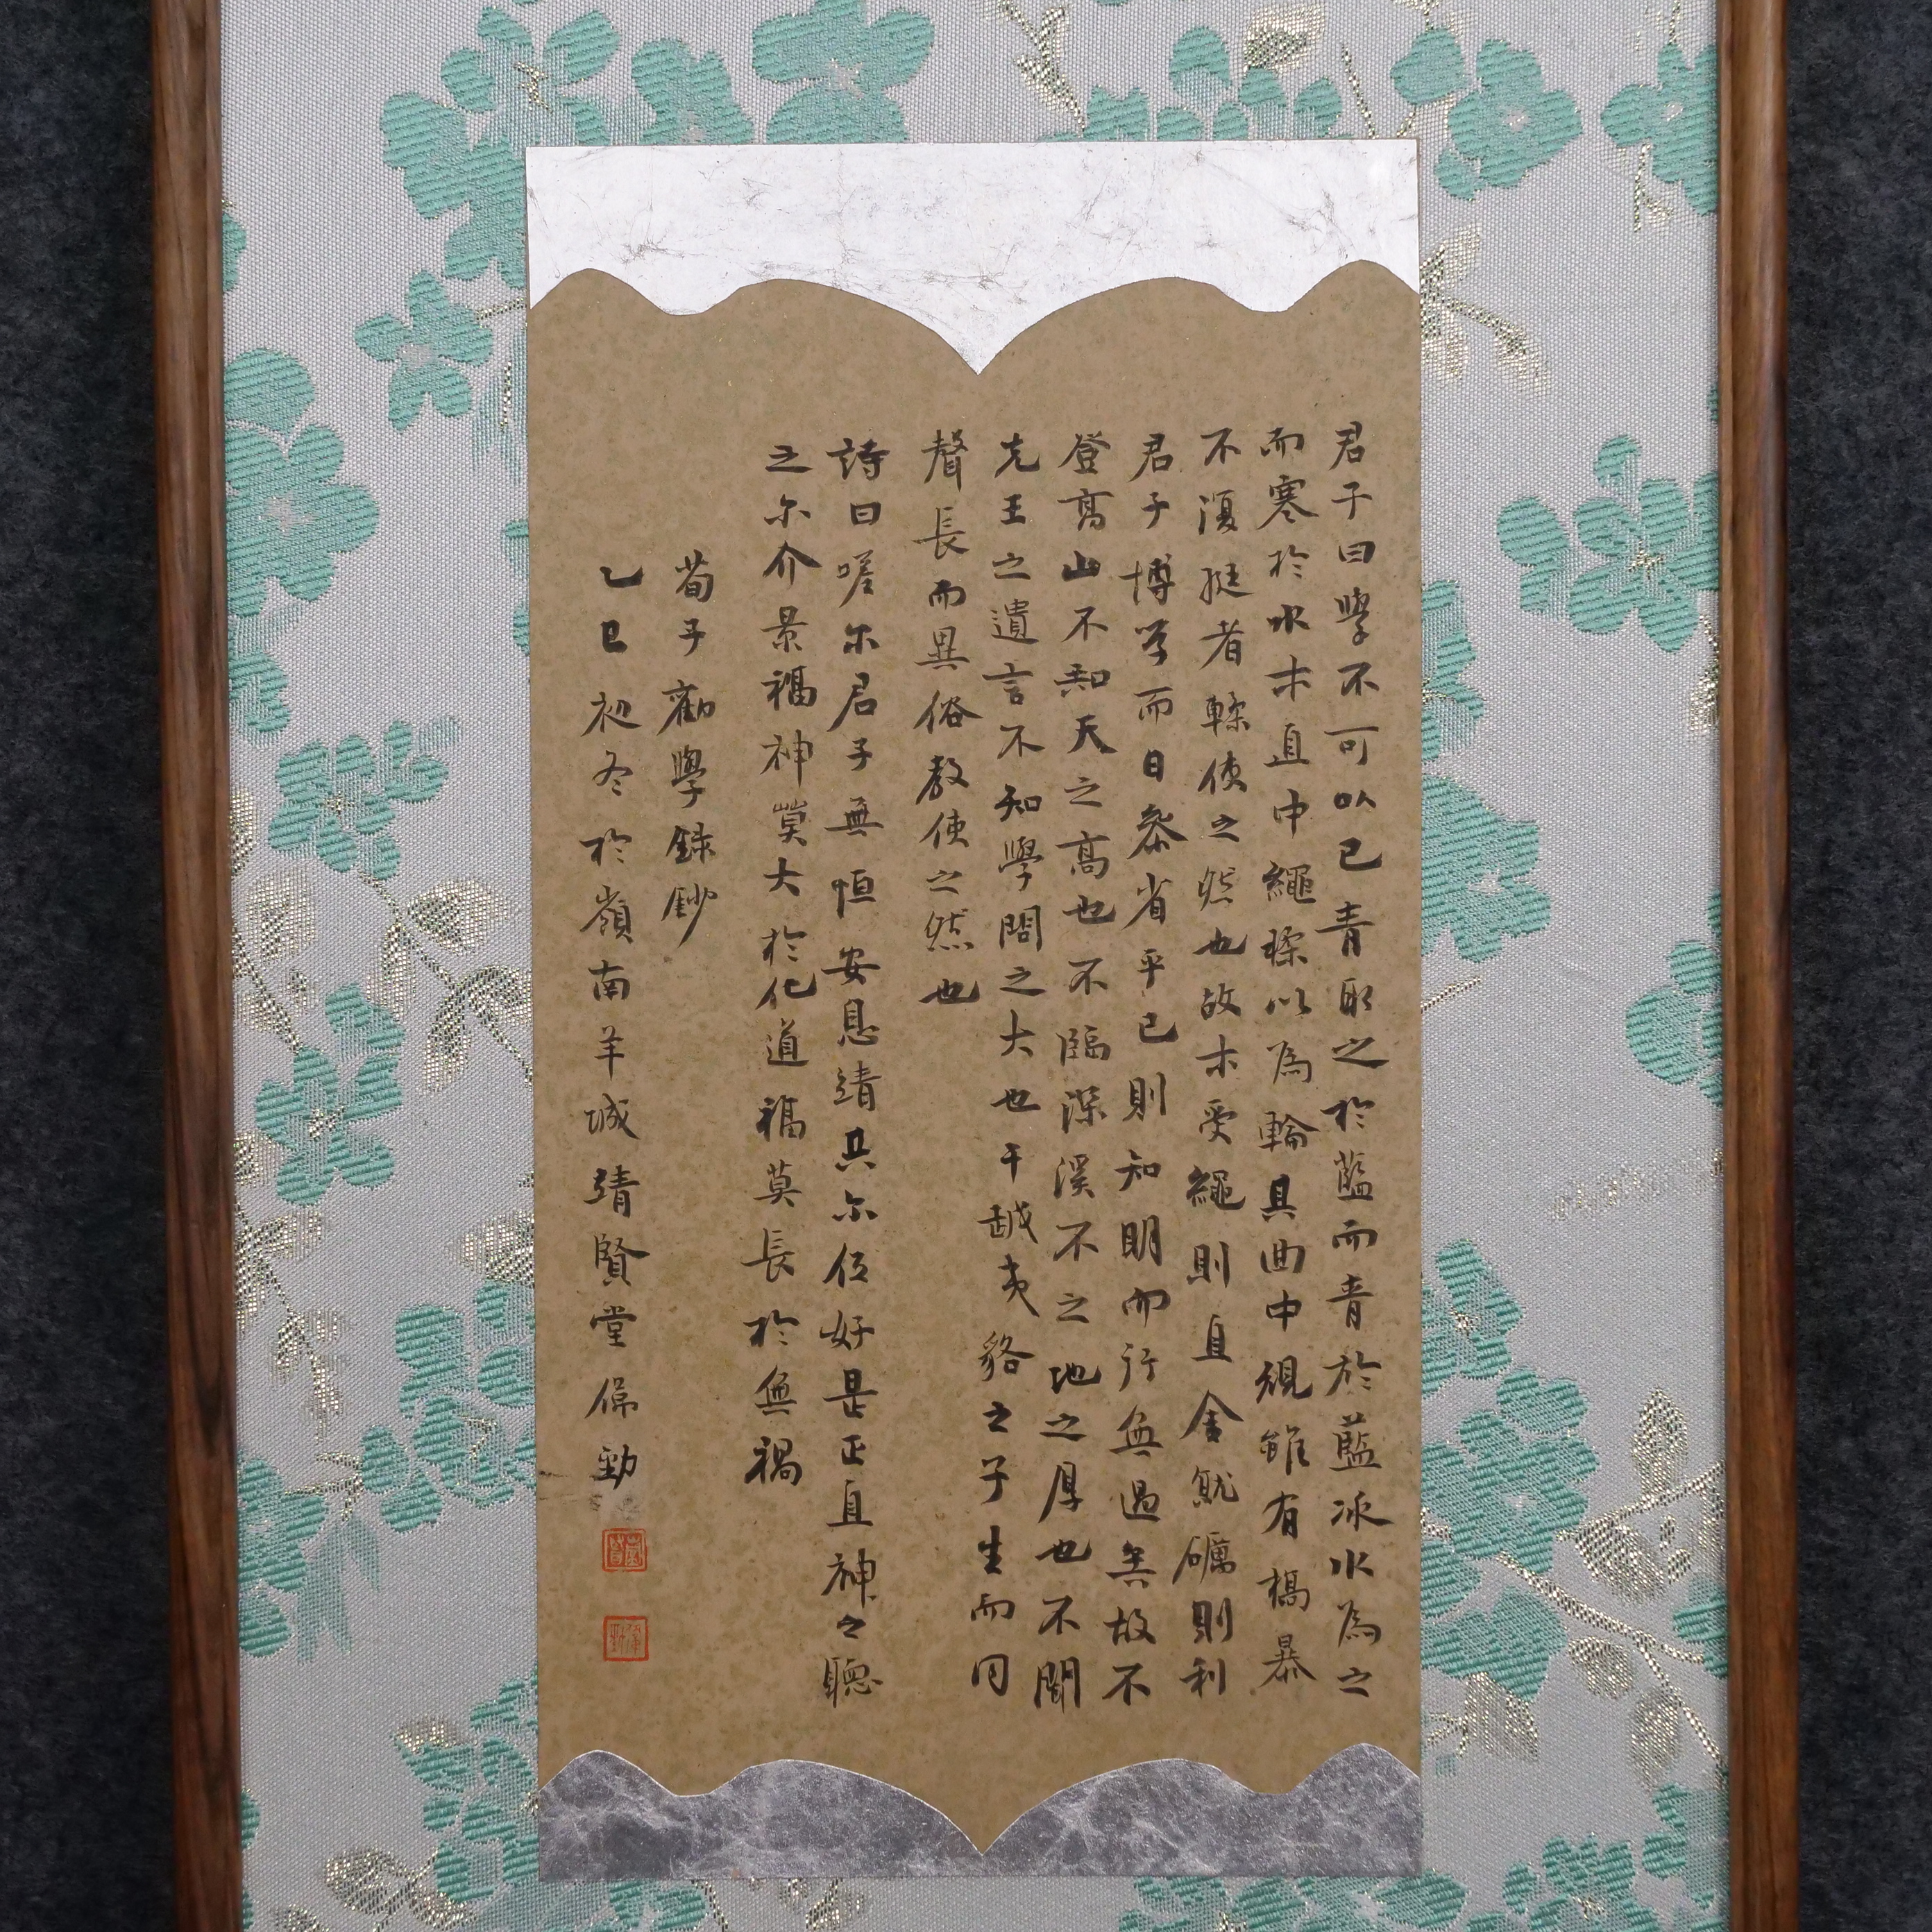 君子曰學不可以已青取之於藍而青於藍冰水為之
而寒於水木直中繩輮以為輪其曲中規雖有槁暴
不復挺者輮使之然也故木受繩則直金就礪則利
君子博學而日參省乎己則知明而行無過矣故不
登高山不知天之高也不臨深溪不之地之厚也不聞
先王之遺言不知學問之大也干越夷貉之子生而同
聲長而異俗教使之然也
詩曰嗟尔君子無恒安息靖共尔位好是正直神之聽
之尔介景福神莫大於化道福莫長於無禍
荀子勸學錄鈔
乙巳初冬於嶺南羊城靖賢堂保勁